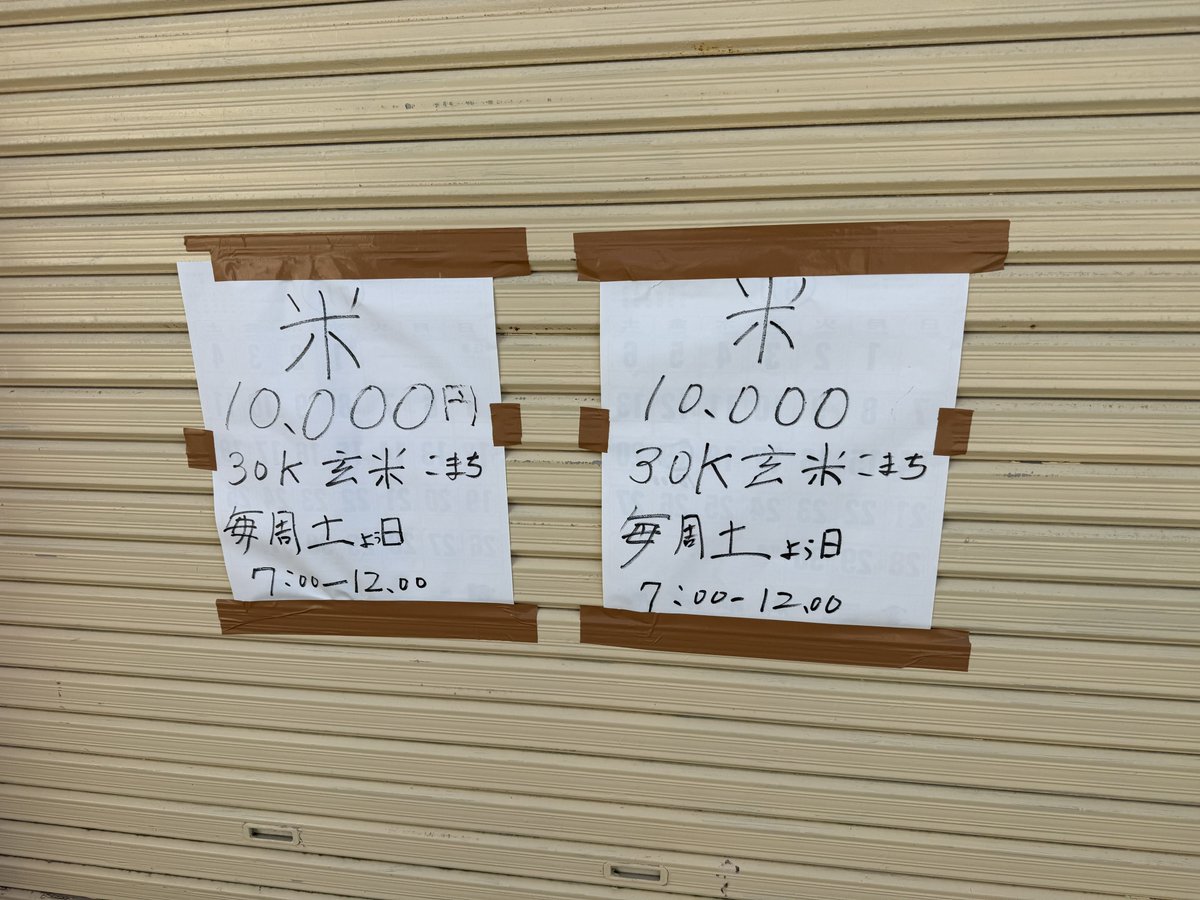 米
10,000円
30K 玄米 こまち
毎周土よう日
7:00-12.00
米
10.000
30K 玄米 こまち
毎周土よう日
7:00-12.00